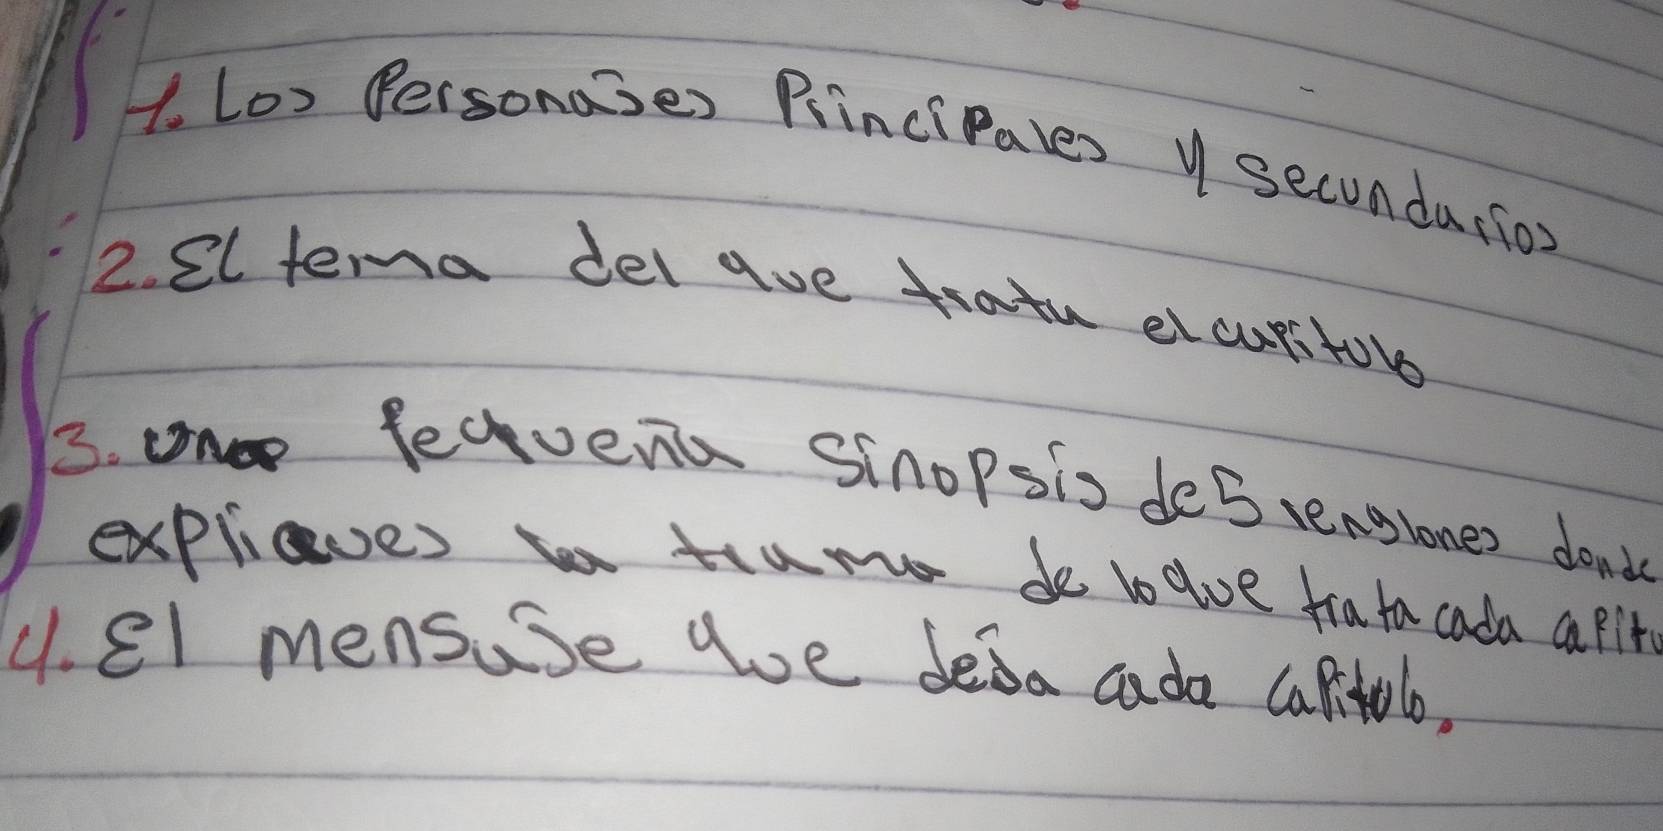 1. Los Personajes Principales y secundarios
2. El tema del que trata el capitulo
3. una Pequeña sinopsis de 5 renglones donde
expliques la trama de lo que trata cada capitu
4. El mensaje que deja cada capitulo.